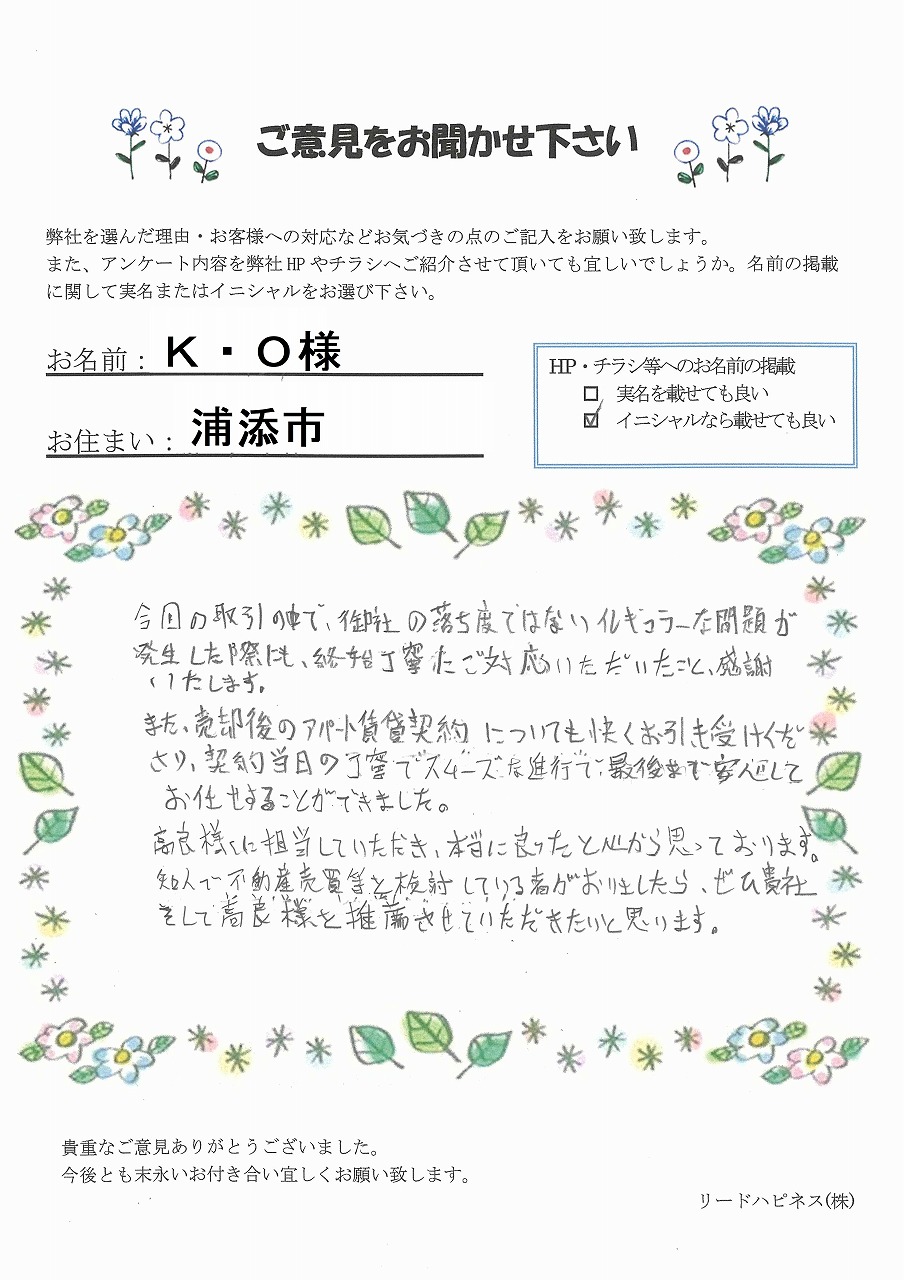 ご意見をお聞かせ下さい
弊社を選んだ理由・お客様への対応などお気づきの点のご記入をお願い致します。
また、アンケート内容を弊社 HP やチラシへご紹介させて頂いても宜しいでしょうか。名前の掲載
に関して実名またはイニシャルをお選び下さい。
お名前： K・O様
お住まい： 浦添市
HP・チラシ等へのお名前の掲載
□ 実名を載せても良い
☑ イニシャルなら載せても良い
今回の取引の中で、御社の落ち度ではないイレギュラーな問題が
発生した際にも、終始丁寧なご対応いただいたこと、感謝
いたします。
また、売却後のアパート賃貸契約についても快くお引き受けくだ
さり、契約当日の丁寧でスムーズな進行で、最後まで安心して
お任せすることができました。
高良様に担当していただき、本当に良かったと心から思っております。
知人で不動産売買等を検討している者がおりましたら、ぜひ貴社
そして高良様を推薦させていただきたいと思います。
貴重なご意見ありがとうございました。
今後とも末永いお付き合い宜しくお願い致します。
リードハピネス(株)